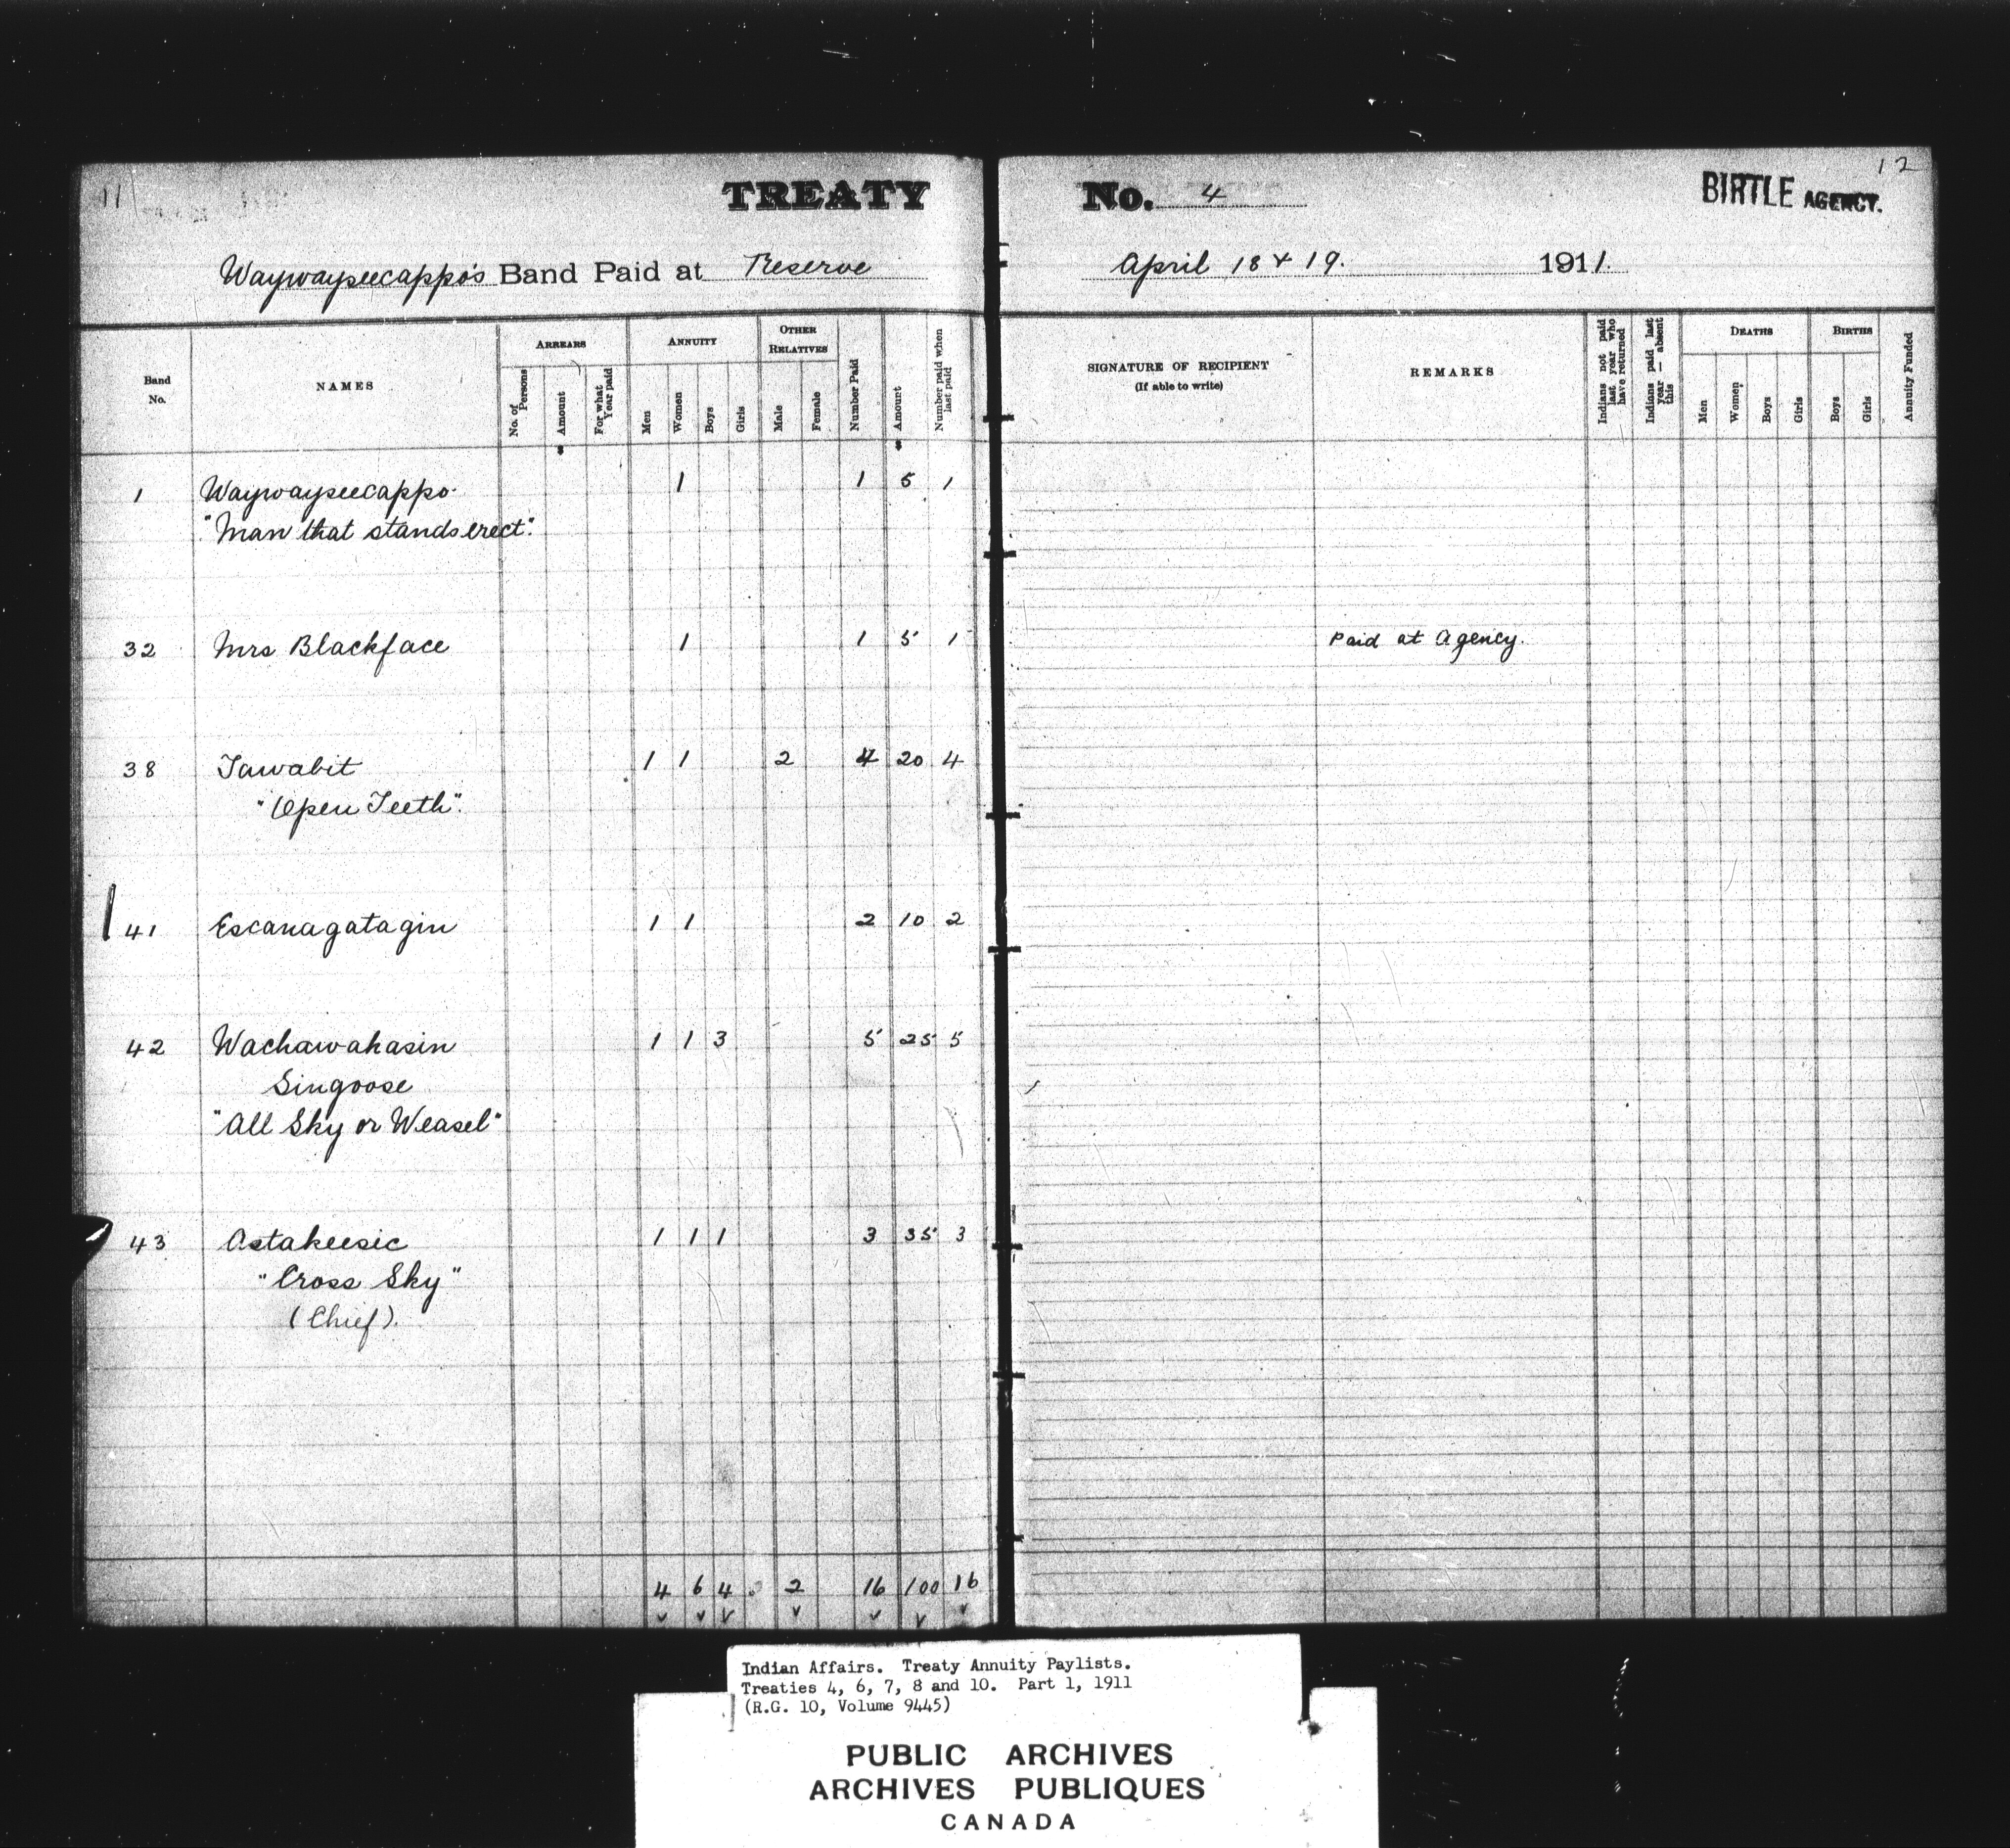 11
TREATY No. 4
12
BIRTLE AGENCY.
Waywayseecappo's Band Paid at Reserve
April 18 & 19. 1911.
Band No.
NAMES
ARREARS
No. of Persons
Amount
For what Year paid
ANNUITY
Men
Women
Boys
Girls
OTHER RELATIVES
Male
Female
Number Paid
Amount
Number paid when last paid
SIGNATURE OF RECIPIENT
(If able to write)
REMARKS
Indians not paid last year who have returned
Indians paid last year — absent this
DEATHS
Men
Women
Boys
Girls
BIRTHS
Boys
Girls
Annuity Funded
1 Waywayseecappo. 1 1 5 1
"Man that stands erect".
32 Mrs Blackface 1 1 5 1 Paid at Agency.
38 Tawabit 1 1 2 4 20 4
"Open Teeth".
41 Escanagatagin 1 1 2 10 2
42 Wachawahasin 1 1 3 5 25 5
Singoose
"All Sky or Weasel"
43 Astakeesic 1 1 1 3 35 3
"Cross Sky"
(Chief).
4 6 4 2 16 100 16
Indian Affairs. Treaty Annuity Paylists.
Treaties 4, 6, 7, 8 and 10. Part 1, 1911
(R.G. 10, Volume 9445)
PUBLIC ARCHIVES
ARCHIVES PUBLIQUES
CANADA